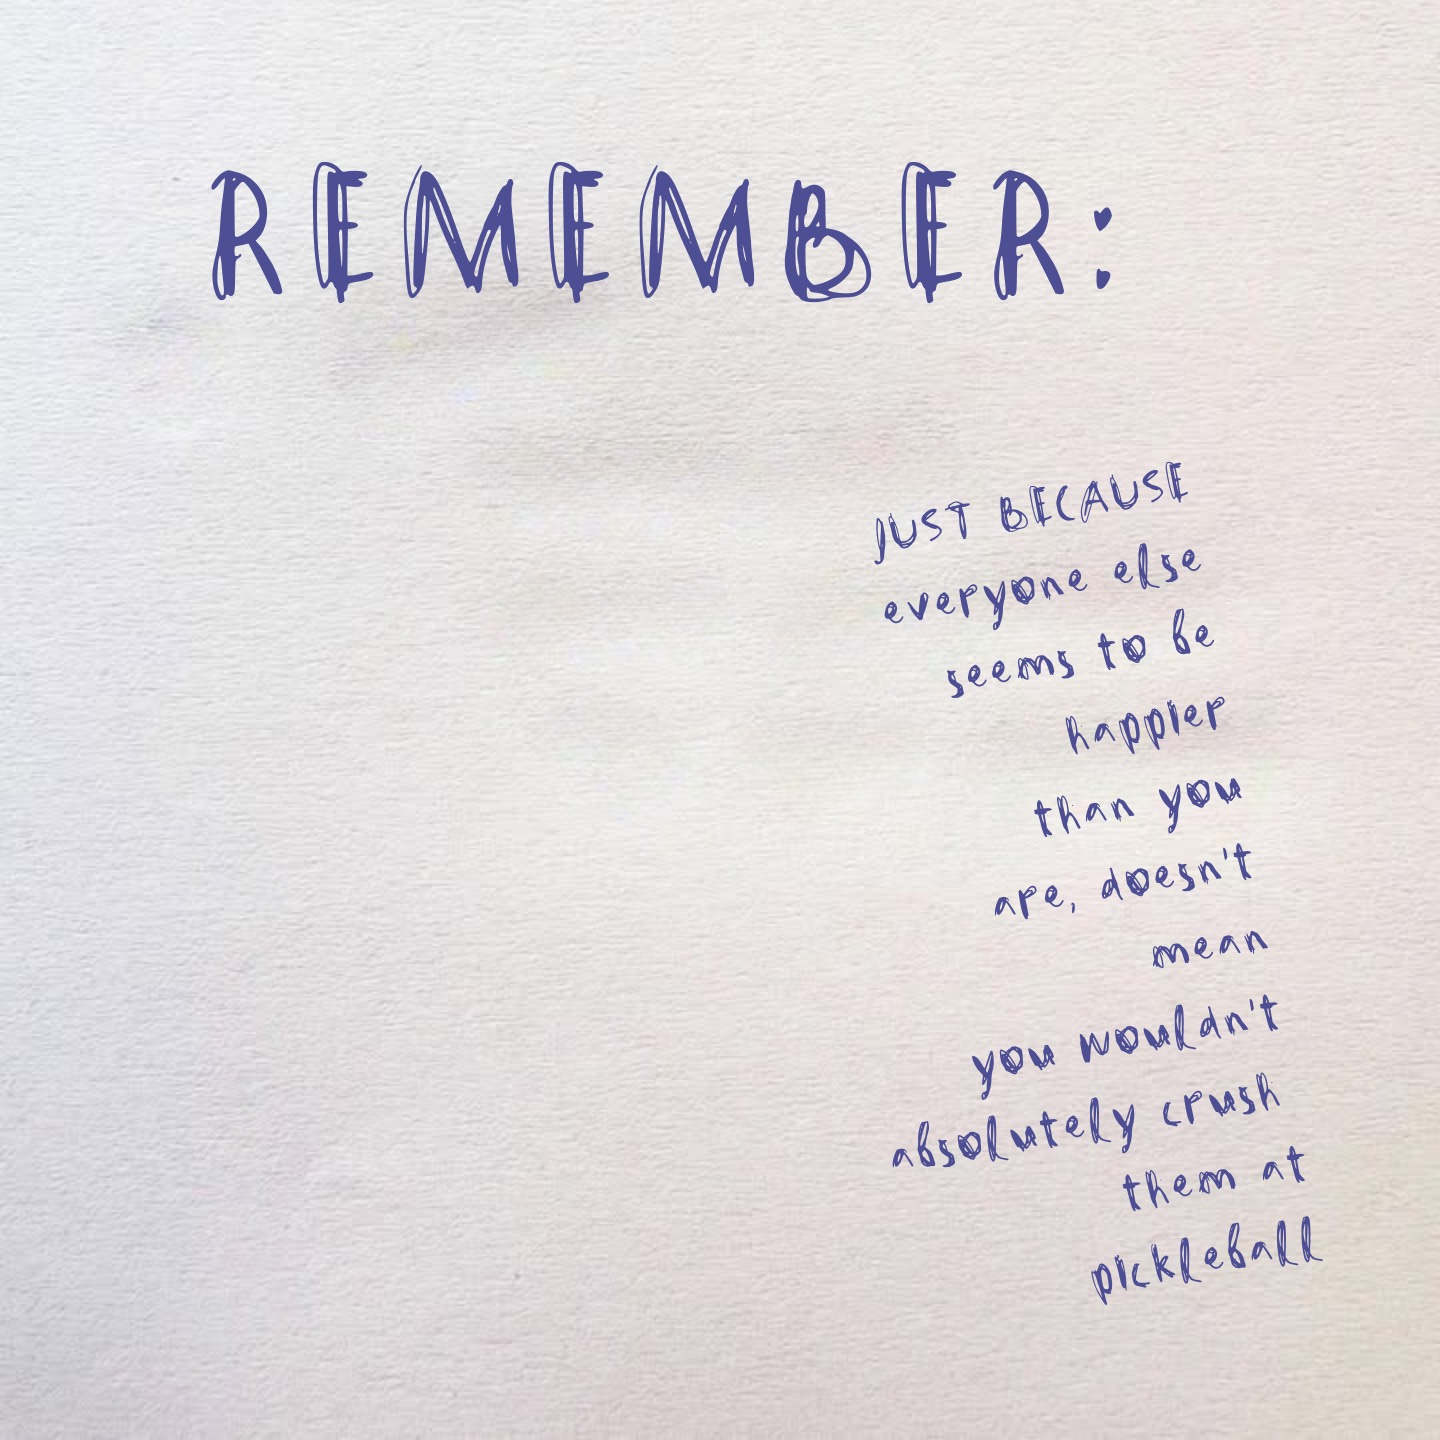 REMEMBER:
JUST BECAUSE
everyone else
seems to be
happier
than you
are, doesn't
mean
you wouldn't
absolutely crush
them at
pickleball